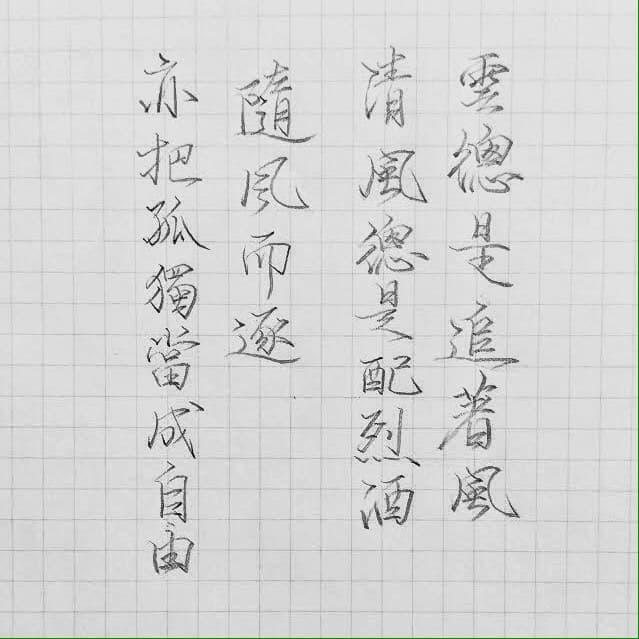 雲總是追著風
清風總是配烈酒
隨風而逐
亦把孤獨當成自由